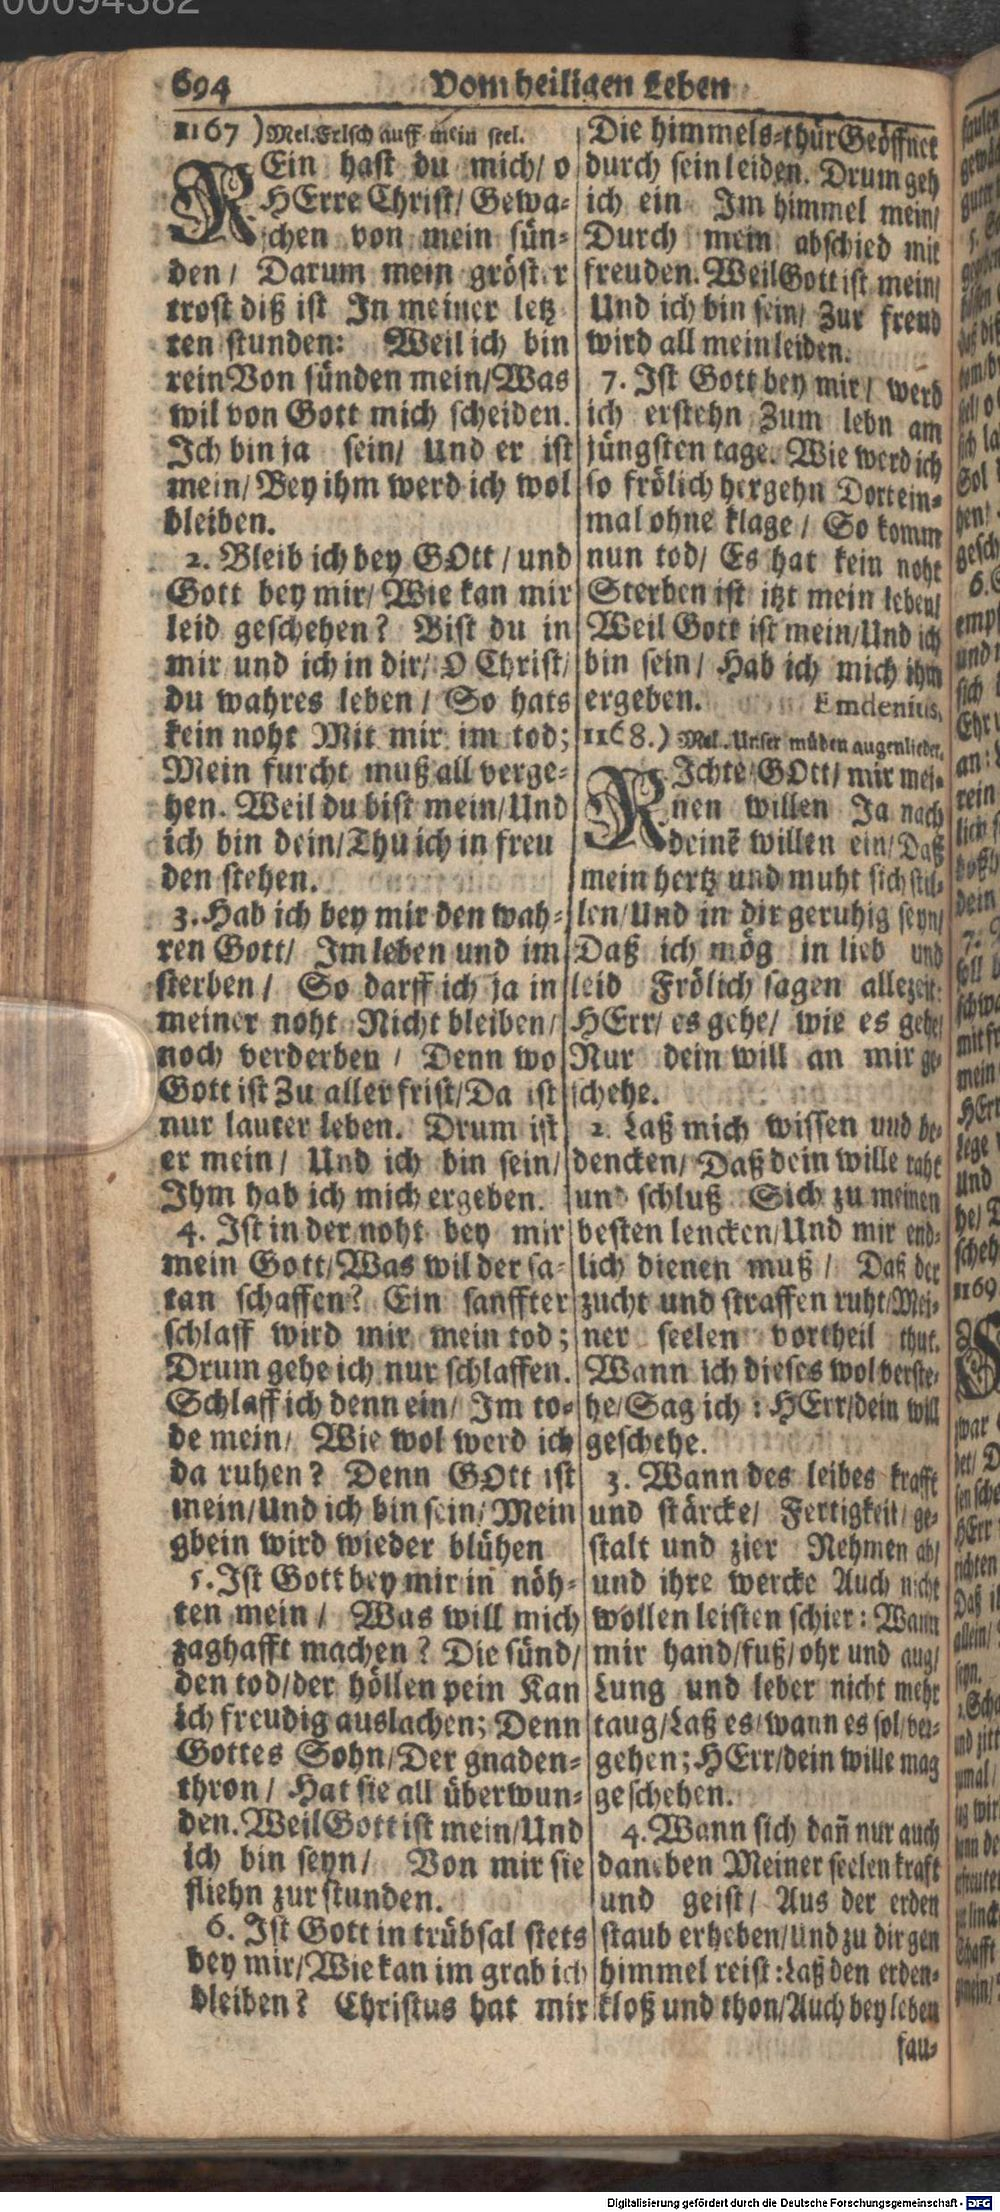 00094382
694 Vom heiligen Leben
1167 ) Mel. Frisch auff mein seel.
REin hast du mich/ o
HErre Christ/ Gewa-
schen von mein sün-
den / Darum mein gröster
trost diß ist In meiner letz
ten stunden: Weil ich bin
rein Von sünden mein/ Was
wil von Gott mich scheiden.
Ich bin ja sein/ Und er ist
mein/ Bey ihm werd ich wol
bleiben.
2. Bleib ich bey GOtt / und
Gott bey mir/ Wie kan mir
leid geschehen? Bist du in
mir und ich in dir/ O Christ/
du wahres leben / So hats
kein noht Mit mir im tod;
Mein furcht muß all verge-
hen. Weil du bist mein/ Und
ich bin dein/ Thu ich in freu
den stehen.
3. Hab ich bey mir den wah-
ren Gott/ Im leben und im
sterben / So darff ich ja in
meiner noht Nicht bleiben/
noch verderben / Denn wo
Gott ist Zu aller frist/ Da ist
nur lauter leben. Drum ist
er mein / Und ich bin sein/
Ihm hab ich mich ergeben.
4. Ist in der noht bey mir
mein Gott/ Was wil der sa-
tan schaffen? Ein sanffter
schlaff wird mir mein tod;
Drum gehe ich nur schlaffen.
Schlaff ich denn ein/ Im to-
de mein/ Wie wol werd ich
da ruhen? Denn GOtt ist
mein/ Und ich bin sein/ Mein
gbein wird wieder blühen
5. Ist Gott bey mir in nöh-
ten mein / Was will mich
zaghafft machen? Die sünd/
den tod/ der höllen pein Kan
ich freudig auslachen; Denn
Gottes Sohn/ Der gnaden-
thron / Hat sie all überwun-
den. Weil Gott ist mein/ Und
ich bin seyn/ Von mir sie
fliehn zur stunden.
6. Ist Gott in trübsal stets
bey mir/ Wie kan im grab ich
bleiben? Christus hat mir
Die himmels-thür Geöffnet
durch sein leiden. Drum geh
ich ein Im himmel mein/
Durch mein abschied mit
freuden. Weil Gott ist mein/
Und ich bin sein/ Zur freud
wird all mein leiden.
7. Ist Gott bey mir / werd
ich erstehn Zum lebn am
jüngsten tage. Wie werd ich
so frölich hergehn Dort ein-
mal ohne klage / So komm
nun tod/ Es hat kein noht
Sterben ist itzt mein leben/
Weil Gott ist mein/ Und ich
bin sein / Hab ich mich ihm
ergeben. Emdenius.
1168.) Mel. Unser müden augenlieder.
RIchte GOtt/ mir mei-
nen willen Ja nach
deinē willen ein/ Daß
mein hertz und muht sich stil-
len/ Und in dir geruhig seyn/
Daß ich mög in lieb und
leid Frölich sagen allezeit:
HErr/ es gehe/ wie es gehe/
Nur dein will an mir ge-
schehe.
2. Laß mich wissen und be-
dencken/ Daß dein wille raht
und schluß Sich zu meinen
besten lencken/ Und mir end-
lich dienen muß / Daß der
zucht und straffen ruht/ Mei-
ner seelen vortheil thut.
Wann ich dieses wol verste-
he/ Sag ich : HErr/ dein will
geschehe.
3. Wann des leibes krafft
und stärcke/ Fertigkeit/ ge-
stalt und zier Nehmen ab/
und ihre wercke Auch nicht
wollen leisten schier: Wann
mir hand/ fuß/ ohr und aug/
Lung und leber nicht mehr
taug/ Laß es/ wann es sol/ ver-
gehen; HErr/ dein wille mag
geschehen.
4. Wann sich dañ nur auch
daneben Meiner seelen kraft
und geist/ Aus der erden
staub erheben/ Und zu dir gen
himmel reist: Laß den erden-
kloß und thon/ Auch bey leben
fau-
Digitalisierung gefördert durch die Deutsche Forschungsgemeinschaft - DFG